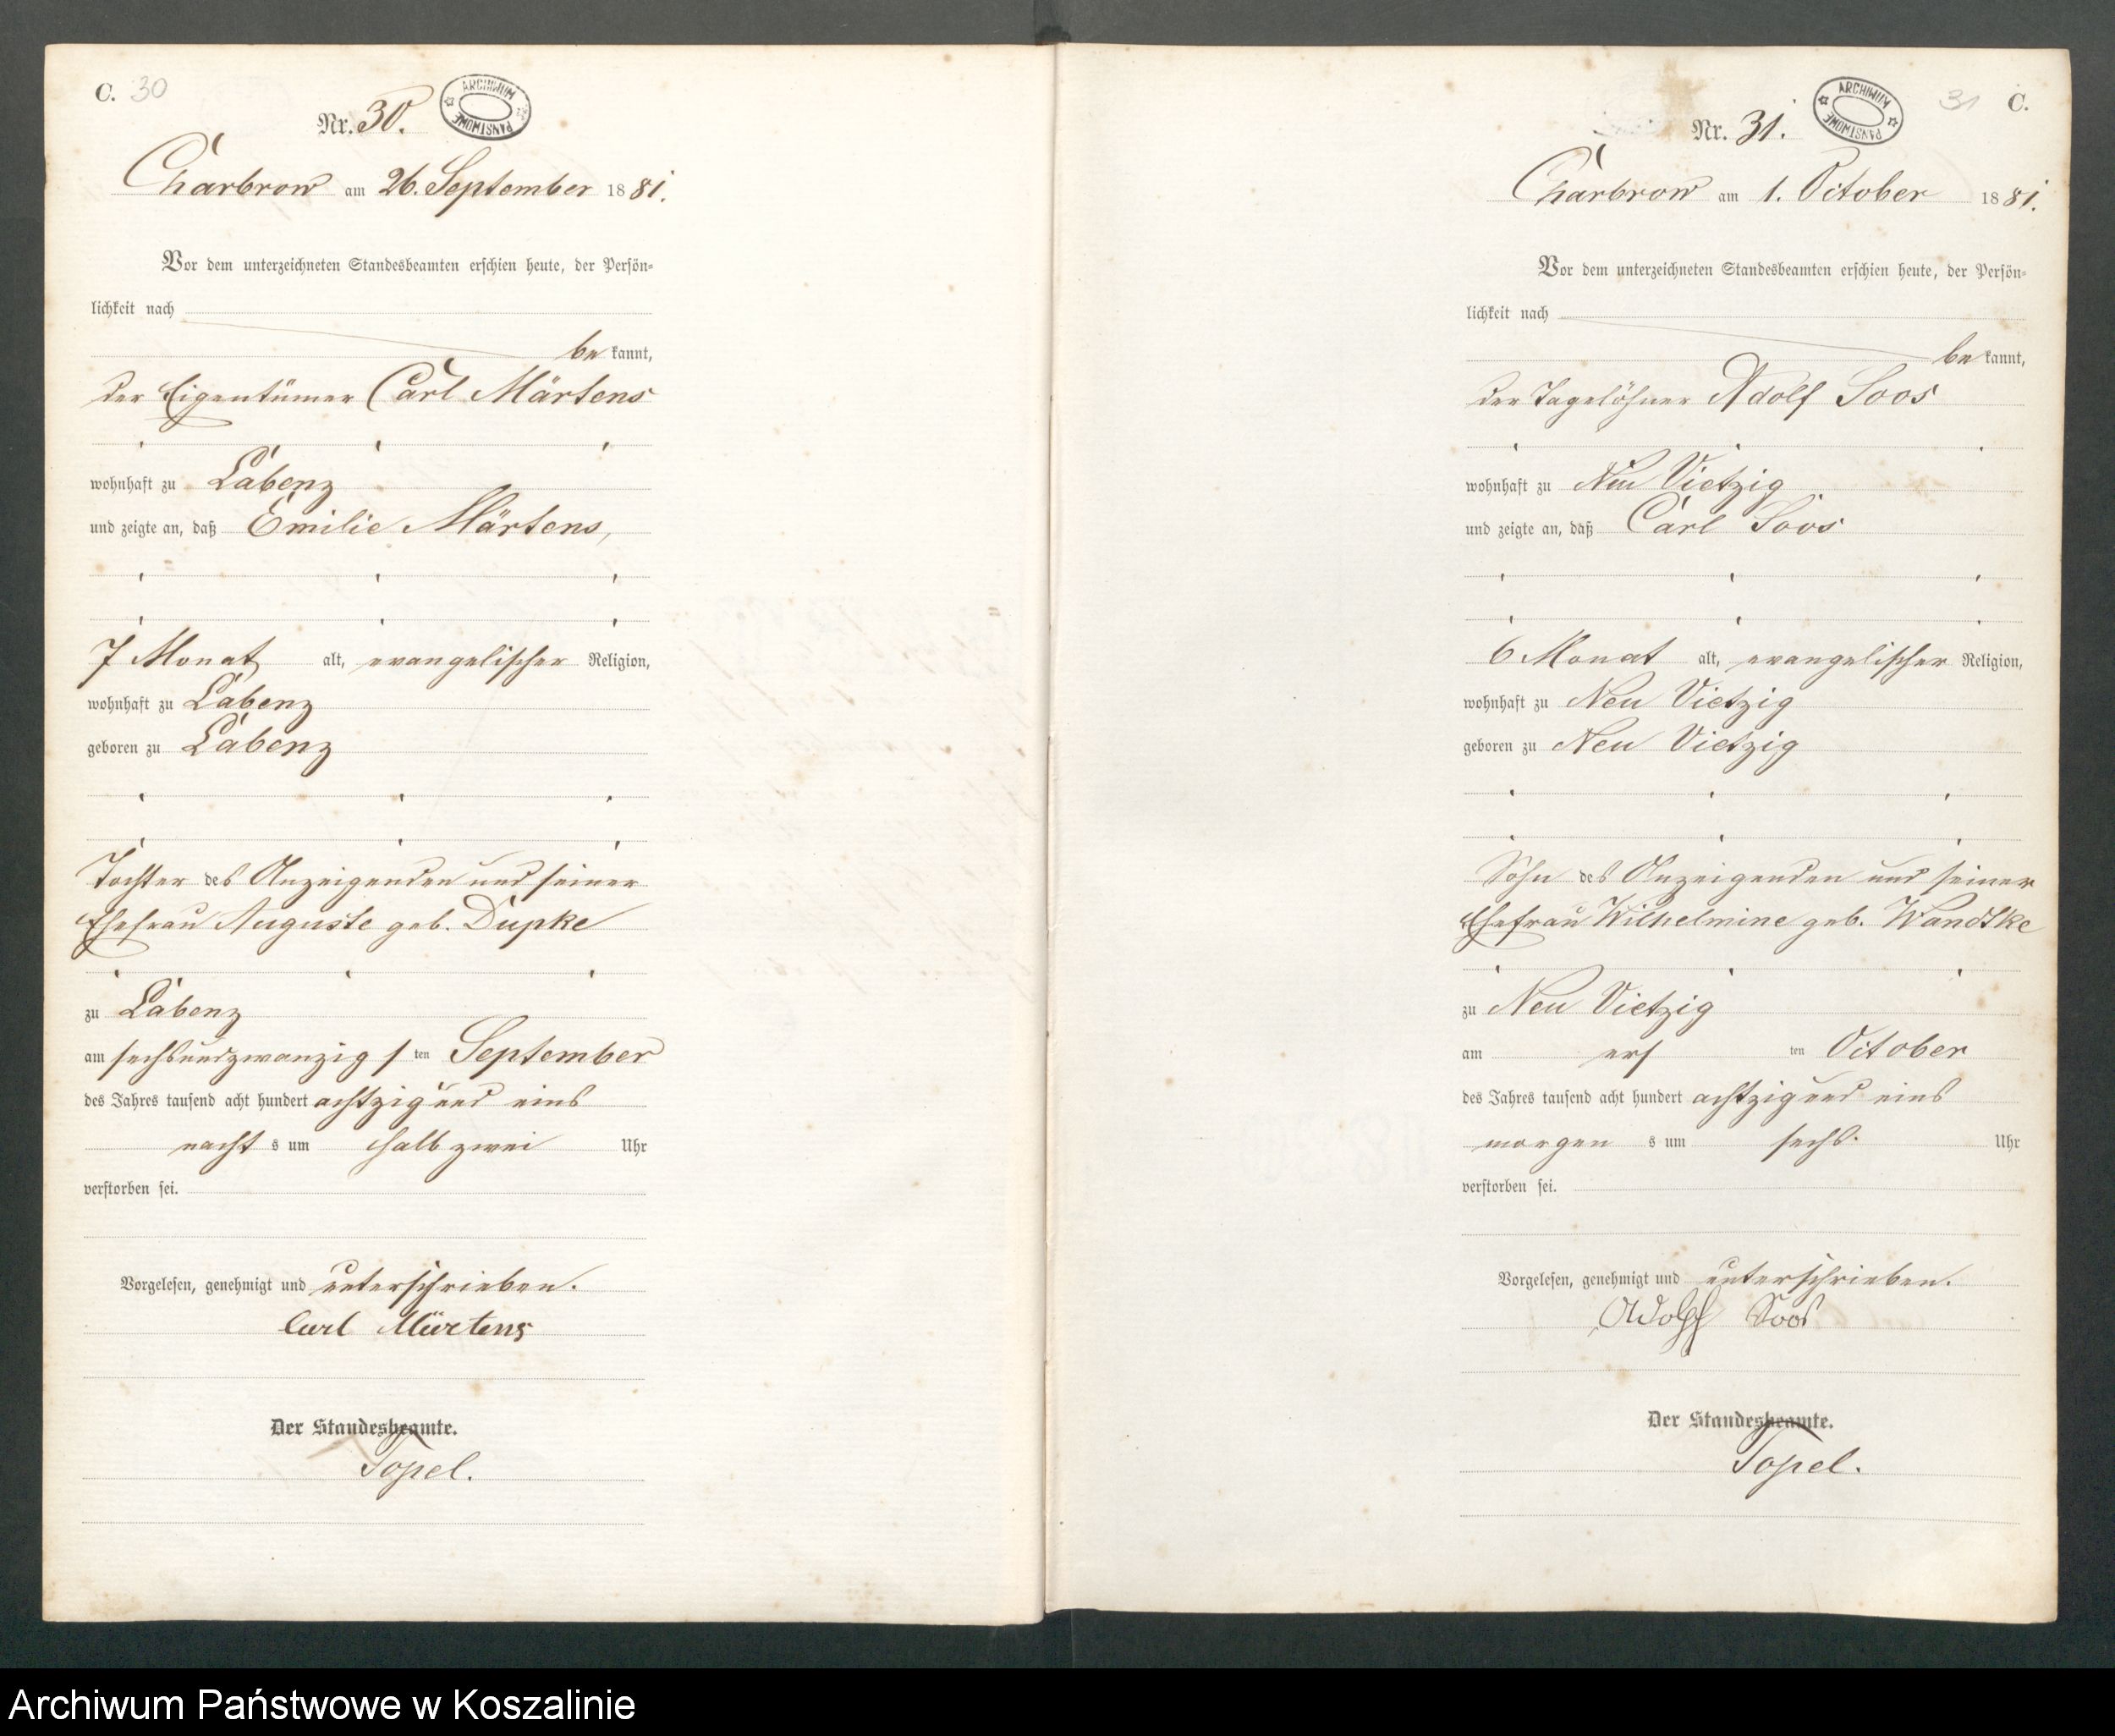 C. 30
Nr. 30.
ARCHIWUM PAŃSTWOWE
Charbrow am 26. September 1881.
Vor dem unterzeichneten Standesbeamten erschien heute, der Persön-
lichkeit nach
bekannt,
der Eigentümer Carl Märtens
wohnhaft zu Labenz
und zeigte an, daß Emilie Märtens,
7 Monat alt, evangelischer Religion,
wohnhaft zu Labenz
geboren zu Labenz
Tochter des Anzeigenden und seiner
Ehefrau Auguste geb. Dupke
zu Labenz
am sechsundzwanzigsten September
des Jahres tausend acht hundert achtzig und eins
nachts um halb zwei Uhr
verstorben sei.
Vorgelesen, genehmigt und unterschrieben.
Carl Märtens
Der Standesbeamte.
Topel.
31 C.
Nr. 31.
ARCHIWUM PAŃSTWOWE
Charbrow am 1. October 1881.
Vor dem unterzeichneten Standesbeamten erschien heute, der Persön-
lichkeit nach
bekannt,
der Tagelöhner Adolf Soos
wohnhaft zu Neu Vietzig
und zeigte an, daß Carl Soos
6 Monat alt, evangelischer Religion,
wohnhaft zu Neu Vietzig
geboren zu Neu Vietzig
Sohn des Anzeigenden und seiner
Ehefrau Wilhelmine geb. Wandtke
zu Neu Vietzig
am ersten October
des Jahres tausend acht hundert achtzig und eins
morgens um sechs Uhr
verstorben sei.
Vorgelesen, genehmigt und unterschrieben.
Adolf Soos
Der Standesbeamte.
Topel.
Archiwum Państwowe w Koszalinie